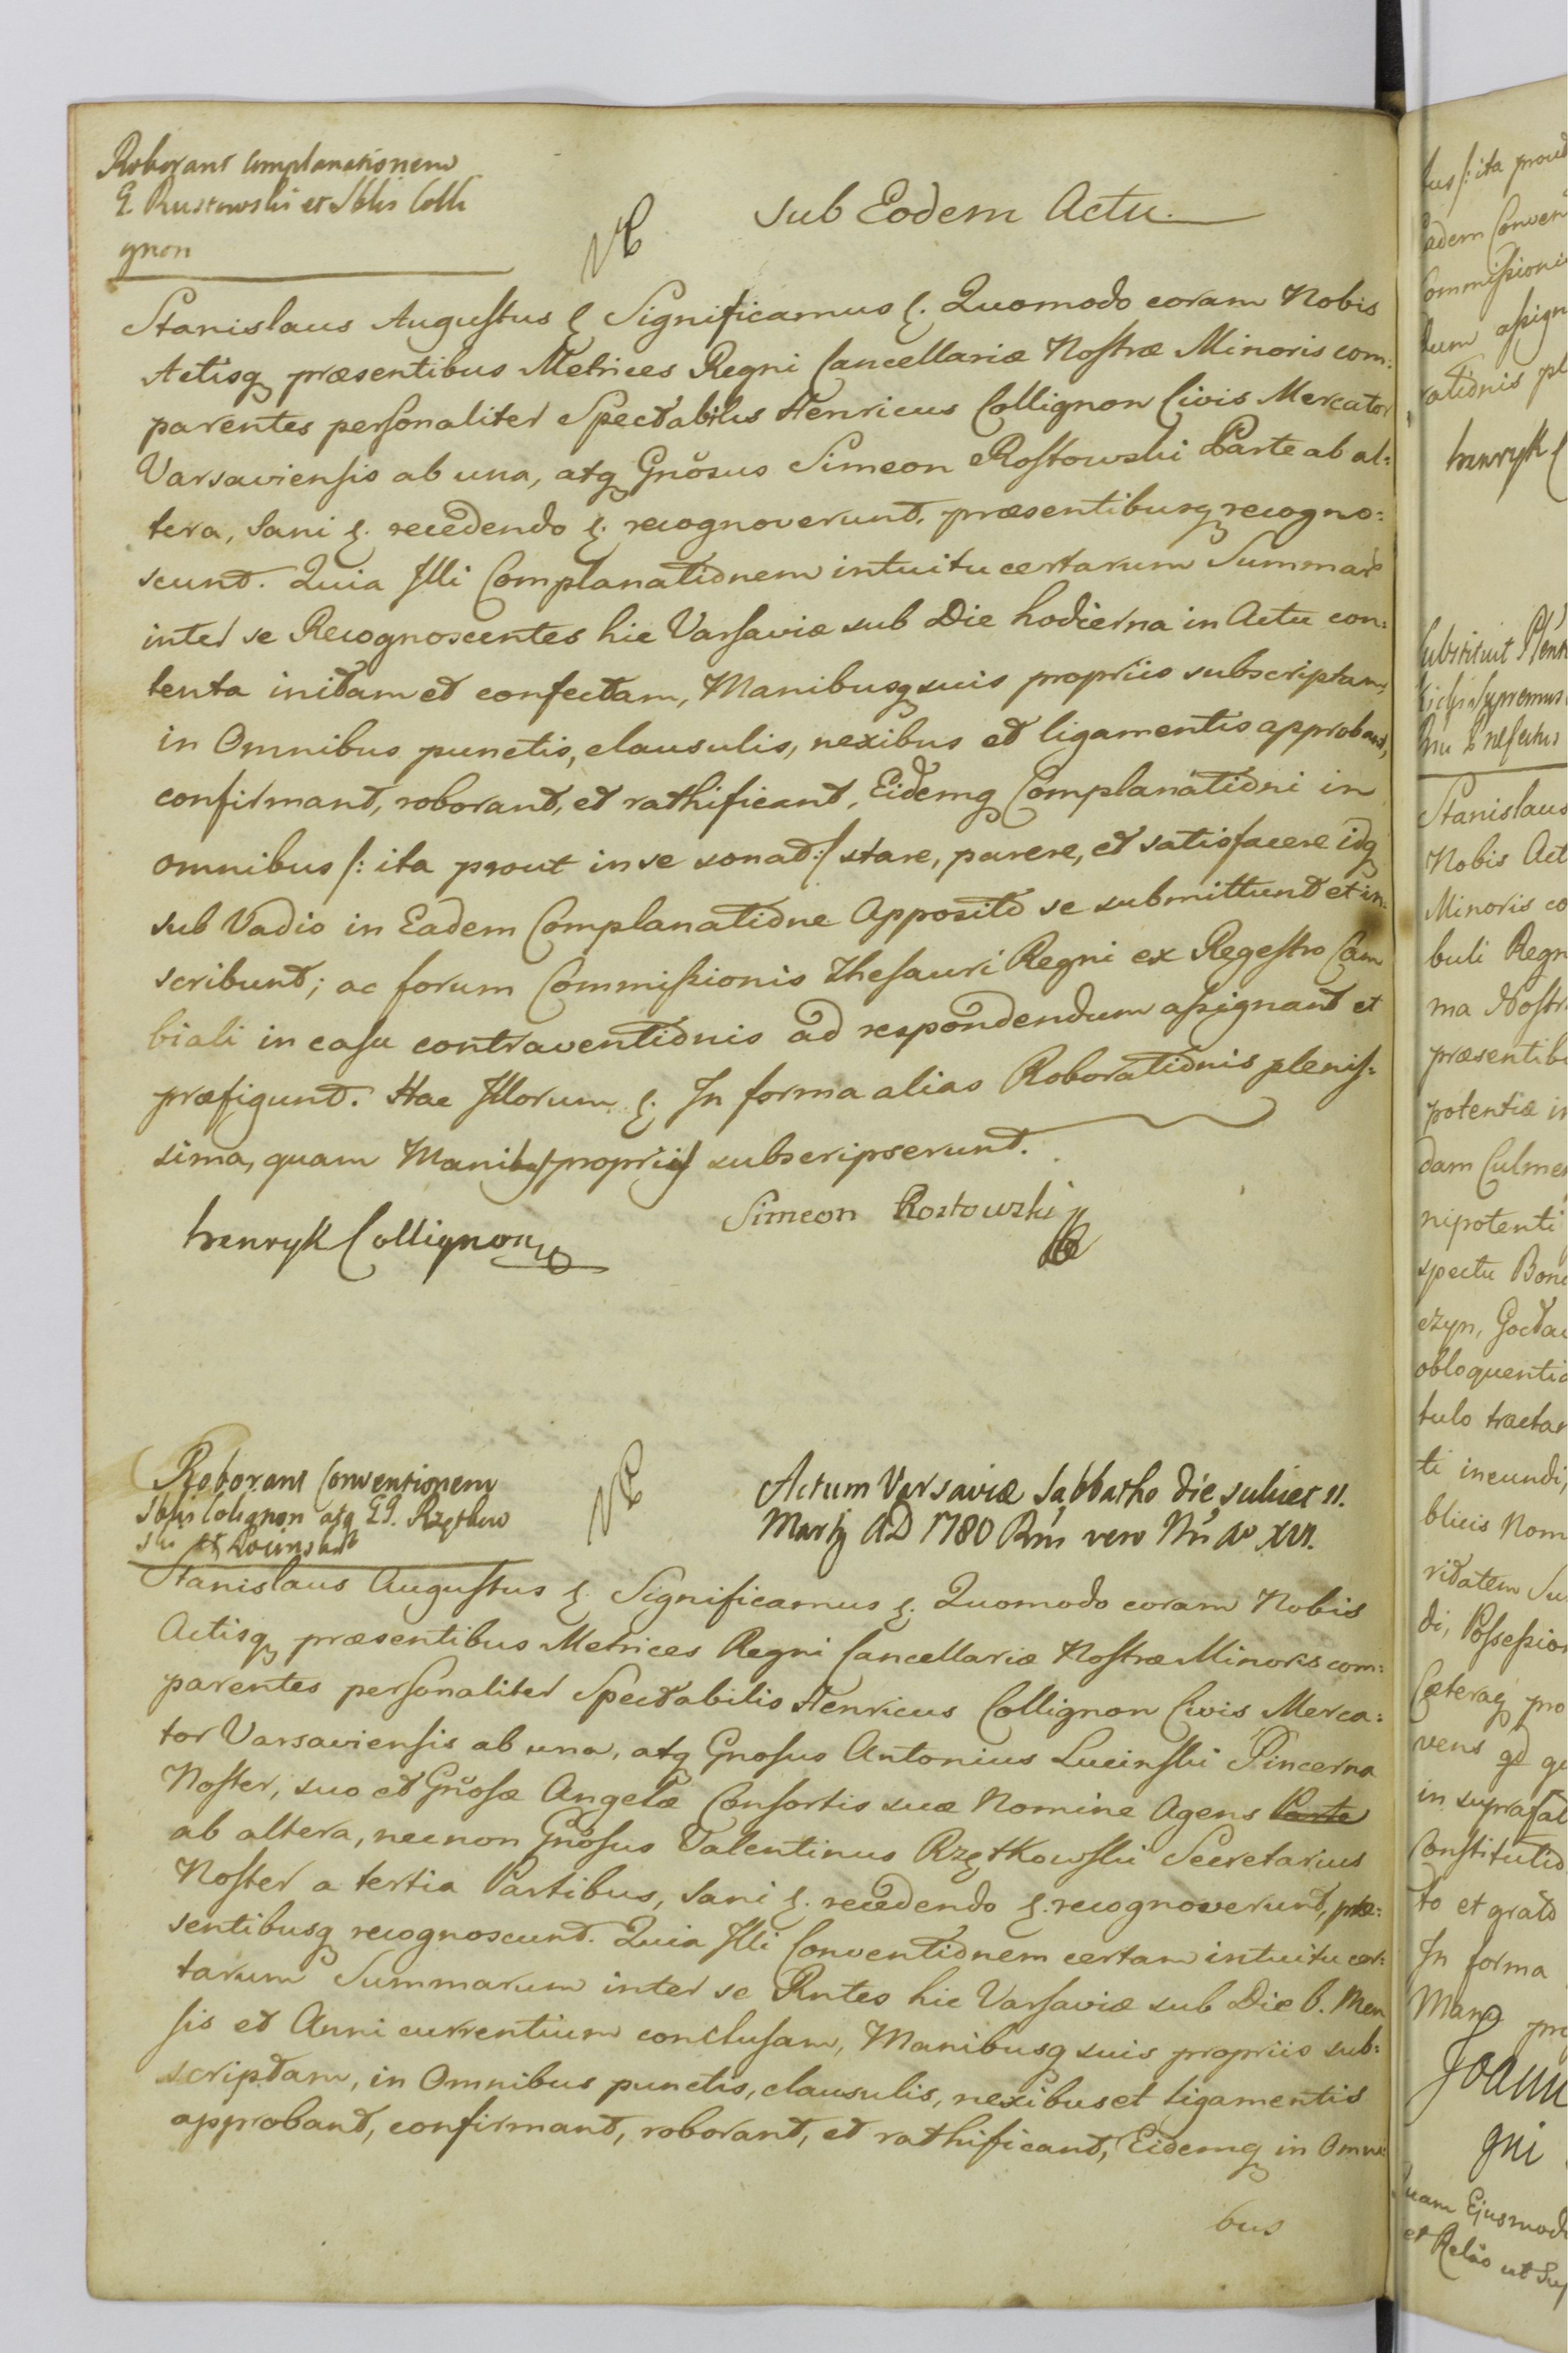 Roborant Complanationem
G. Rustowski et Sblis Colli
gnon
Sub Eodem Actu
Stanislaus Augustus &. Significamus &. Quomodo coram Nobis
Actisq præsentibus Metrices Regni Cancellariæ Nostræ Minoris com:
parentes personaliter Spectabilis Henricus Collignon Civis Mercator
Varsaviensis ab una, atq Gnosus Simeon Rostowski Parte ab al:
tera, Sani &. recedendo &. recognoverunt, præsentibusq recogno:
scunt. Quia Illi Complanationem intuitu certarum Summar
inter se Recognoscentes hic Varsaviæ sub Die hodierna in Actu con:
tenta initam et confectam, Manibusq suis propriis subscriptam,
in Omnibus punctis, clausulis, nexibus et ligamentis approbant,
confirmant, roborant, et rathificant, Eidemq Complanationi in
omnibus /: ita prout in se sonat :/ stare, parere, et satisfacere idq
sub Vadio in Eadem Complanatione Apposito se submittunt et in:
scribunt; ac forum Commissionis Thesauri Regni ex Regestro Cam
biali in casu contraventionis ad respondendum assignant et
præfigunt. Hac Illorum &. In forma alias Roborationis plenis:
sima, quam Manibus propriis subscripserunt.
Henryk Collignon
Simeon Rostowski
Roborant Conventionem
Sblis Colignon atq GG. Rzętkow
ski et Łucinski
Actum Varsaviæ Sabbatho die scilicet 11.
Martij AD 1780 Rni vero Nri Ao XVI.
Stanislaus Augustus &. Significamus &. Quomodo coram Nobis
Actisq præsentibus Metrices Regni Cancellariæ Nostræ Minoris com:
parentes personaliter Spectabilis Henricus Collignon Civis Merca:
tor Varsaviensis ab una, atq Gnosus Antonius Lucinski Pincerna
Noster, suo et Gnosæ Angelæ Consortis suæ Nomine Agens Parte
ab altera, necnon Gnosus Valentinus Rzętkowski Secretarius
Noster a tertia Partibus, Sani &. recedendo &. recognoverunt, præ:
sentibusq recognoscunt. Quia Illi Conventionem certam intuitu cer:
tarum Summarum inter se Rntes hic Varsaviæ sub Die 6. Men
sis et Anni currentium conclusam, Manibusq suis propriis sub:
scriptam, in Omnibus punctis, clausulis, nexibus et ligamentis
approbant, confirmant, roborant, et rathificant, Eidemq in Omni
bus
bus /: ita prout
Eadem Conven
Commissioni
dum assign
rationis pl
Henryk C
Substituit
Stanislaus
Nobis Act
Minoris co
buli Regn
ma Nostr
præsentib
potentiæ i
dam Culme
nipotenti
spectu Bon
czyn,
obloquenti
tulo tractar
ti ineundi,
blicis Nom
ritatem Su
di, Possession
Cæteraq pro
vens qd
in suprafat
Constitutio
to et grato
In forma
Manu pro
Joann
gni
quam Ejusmodi
et Relao ut Sup